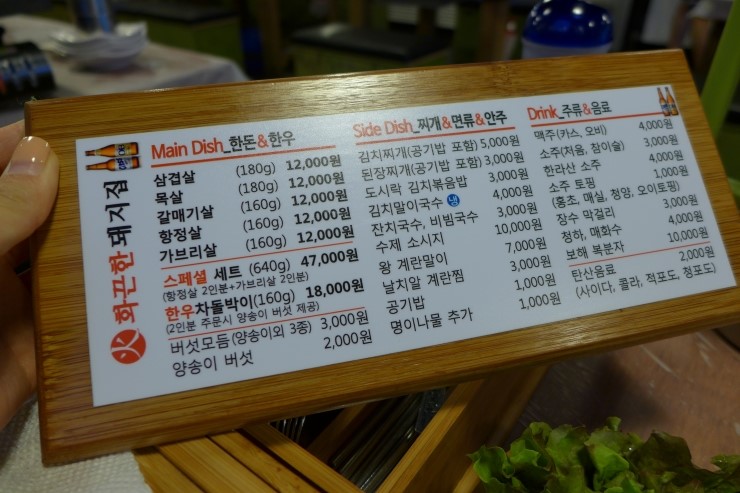 화끈한 돼지집
Main Dish_한돈&한우
삼겹살 (180g) 12,000원
목살 (180g) 12,000원
갈매기살 (160g) 12,000원
항정살 (160g) 12,000원
가브리살 (160g) 12,000원
스페셜 세트 (640g) 47,000원
(항정살 2인분+가브리살 2인분)
한우차돌박이(160g) 18,000원
(2인분 주문시 양송이 버섯 제공)
버섯모듬(양송이외 3종) 3,000원
양송이 버섯 2,000원
Side Dish_찌개&면류&안주
김치찌개(공기밥 포함) 5,000원
된장찌개(공기밥 포함) 3,000원
도시락 김치볶음밥 3,000원
김치말이국수 냉 4,000원
잔치국수, 비빔국수 3,000원
수제 소시지 10,000원
왕 계란말이 7,000원
날치알 계란찜 3,000원
공기밥 1,000원
명이나물 추가 1,000원
Drink_주류&음료
맥주(카스, 오비) 4,000원
소주(처음, 참이슬) 3,000원
한라산 소주 4,000원
소주 토핑 1,000원
(홍초, 매실, 청양, 오이토핑)
장수 막걸리 3,000원
청하, 매화수 4,000원
보해 복분자 10,000원
탄산음료 2,000원
(사이다, 콜라, 적포도, 청포도)